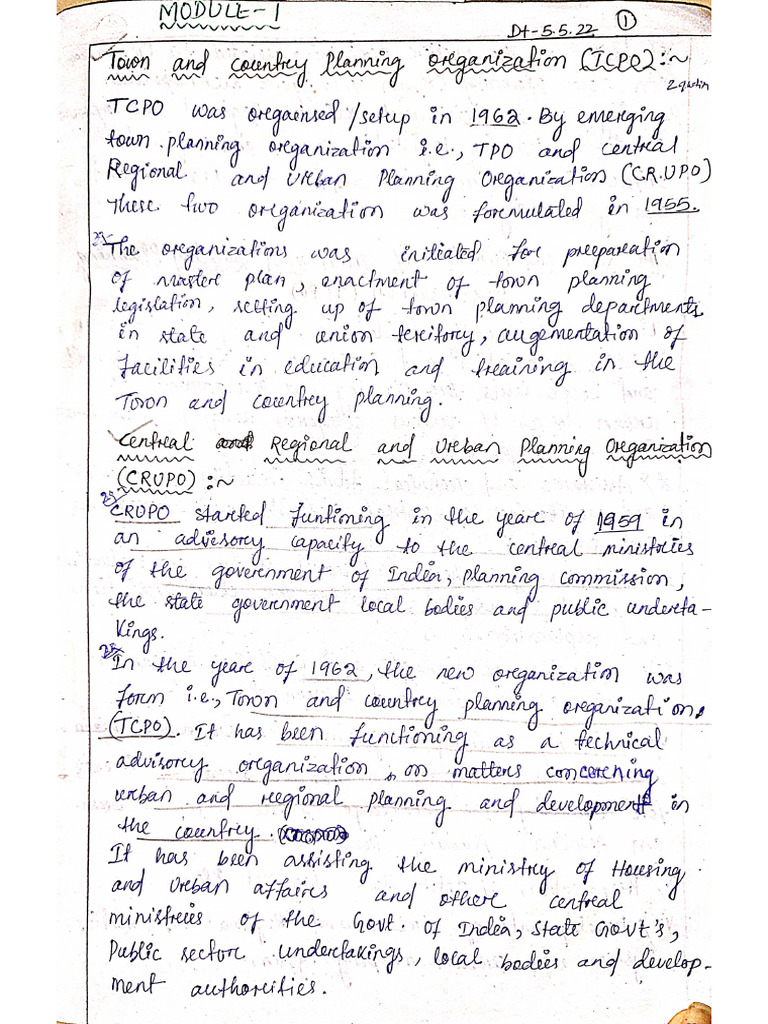 MODULE-1
Dt-5.5.22 ①
Town and Country Planning Organization (TCPO) :~
TCPO was orgainsed/setup in 1962. By emerging
town planning organization i.e., TPO and central
Regional and Urban Planning Organization (CR.UPO)
These two organization was formulated in 1955.
The organizations was initiated for preparation
of master plan, enactment of town planning
legislation, setting up of town planning departments
in state and union territory, augmentation of
facilities in education and training in the
Town and country planning.
Central Regional and Urban Planning Organization
(CRUPO) :~
CRUPO started funtioning in the year of 1959 in
an advisory capacity to the central ministries
of the government of India, planning commission,
the state government local bodies and public underta-
kings.
In the year of 1962, the new organization was
form i.e., Town and country planning organization,
(TCPO). It has been functioning as a technical
advisory organization, on matters concerning
urban and regional planning and development in
the country.
It has been assisting the ministry of Housing
and Urban affairs and other central
ministries of the Govt. of India, State Govt's,
Public sector undertakings, local bodies and develop-
ment authorities.